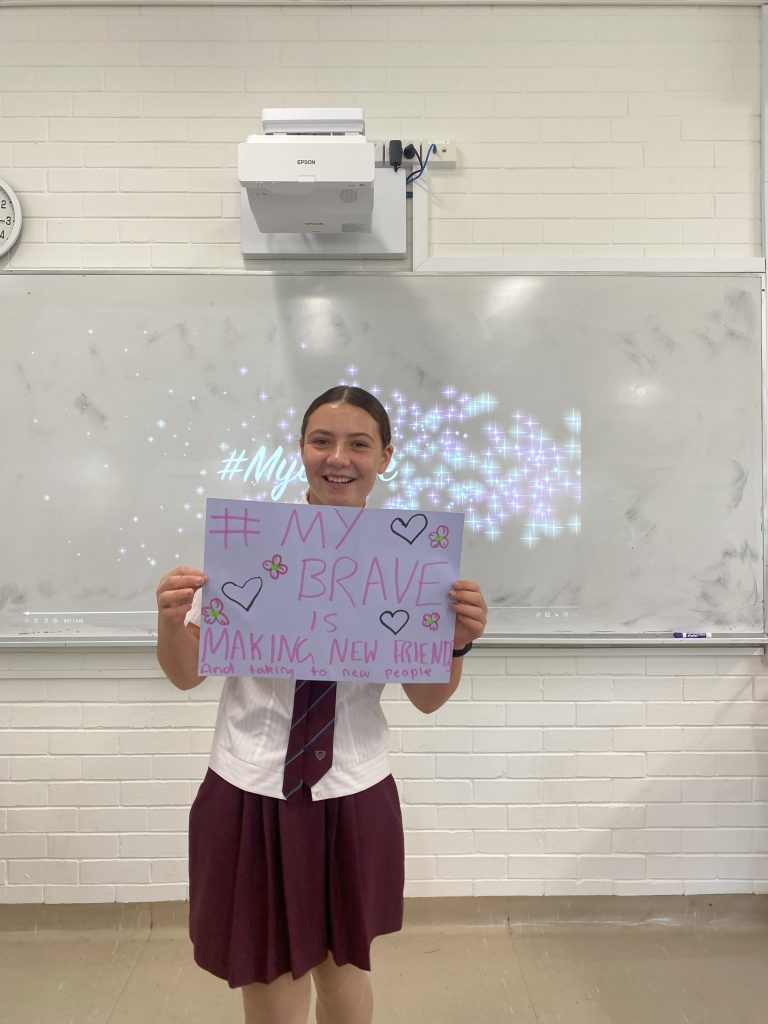 EPSON
EPSON
2
3
4
# MY
BRAVE
IS
MAKING NEW FRIEND
And taking to new people